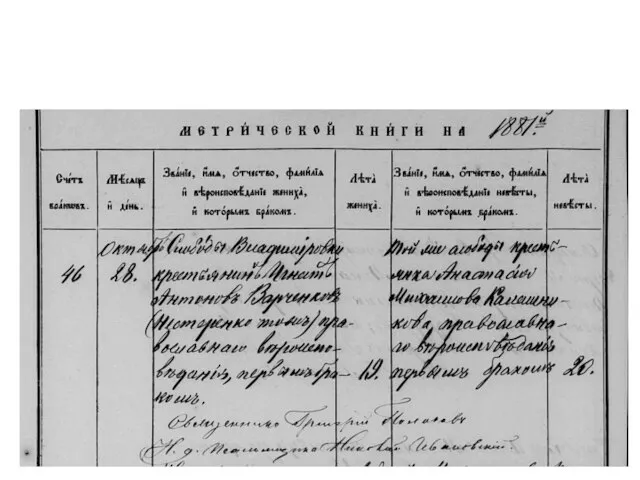 МЕТРИЧЕСКОЙ КНИГИ НА 1881й
Счетъ браковъ.
Мѣсяцъ и день.
Званіе, имя, отчество, фамилія и вѣроисповѣданіе жениха, и которымъ бракомъ.
Лѣта жениха.
Званіе, имя, отчество, фамилія и вѣроисповѣданіе невѣсты, и которымъ бракомъ.
Лѣта невѣсты.
46
Октября
28.
Слободы Владиміровки
крестьянинъ Игнатъ
Антоновъ Варченковъ
(Нестеренко тожъ) пра-
вославнаго вѣроиспо-
вѣданія, первымъ бра-
комъ.
19.
Той же слободы кресть-
янка Анастасія
Михаилова Калашни-
кова, православна-
го вѣроисповѣданія
первымъ бракомъ
20.
Священникъ Григорій
И. д. Псаломщика Николай Ивановскій.